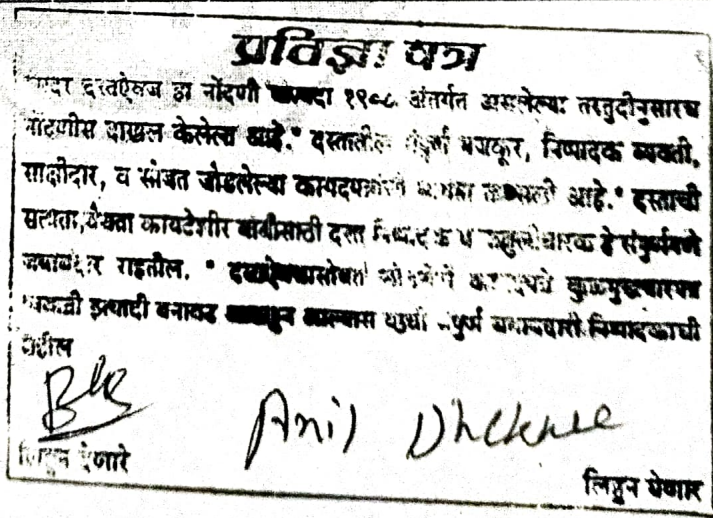 प्रतिज्ञा पत्र
सदर दस्तऐवज हा नोंदणी कायदा १९०८ अंतर्गत असलेल्या तरतुदीनुसारच
नोंदणीस दाखल केलेला आहे. * दस्तातील संपूर्ण मजकूर, निष्पादक व्यक्ती,
साक्षीदार, व सोबत जोडलेल्या कागदपत्रांची आहे. * दस्ताची
सत्यता, वैधता कायदेशीर बाबींसाठी दस्त निष्पादक व हे संपूर्णपणे
जबाबदार राहतील. * दस्तऐवजासोबत जोडलेले कागदपत्रे कुळमुखत्यारपत्र
व्यक्ती इत्यादी बनावट आढळून आल्यास याची संपूर्ण जबाबदारी निष्पादकाची
राहील
Anil
लिहून देणारे
लिहून घेणार